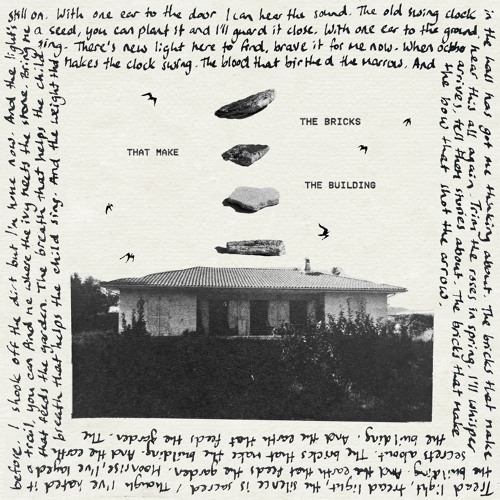 still on. With one ear to the door I can hear the sound. The old swing clock
a seed, you can plant it and I'll guard it close. With one ear to the ground,
sing. There's new light here to find, brave it for me now. When
makes the clock swing. The blood that birthed the marrow. And
in the wall has got me thinking about. The bricks that make
hear this all again. Trim the roses in spring. I'll whisper
arrives, tell their stories about. The bricks that make
the bow that shot the arrow.
THE BRICKS
THAT MAKE
THE BUILDING
Tread light, tread light, the silence is sacred. Though I've hated it
the building. And the earth that feeds the garden. Moonrise I've loved
secrets about. The bricks that make the building. And the earth
the building. And the earth that feeds the garden. The
before. I shook off the dirt but I'm home now. And the light's
a trail, you can find me where the ivy meets the stone. Bring me
that feeds the garden. The breath that helps the child
breath that helps the child sing. And the weight that